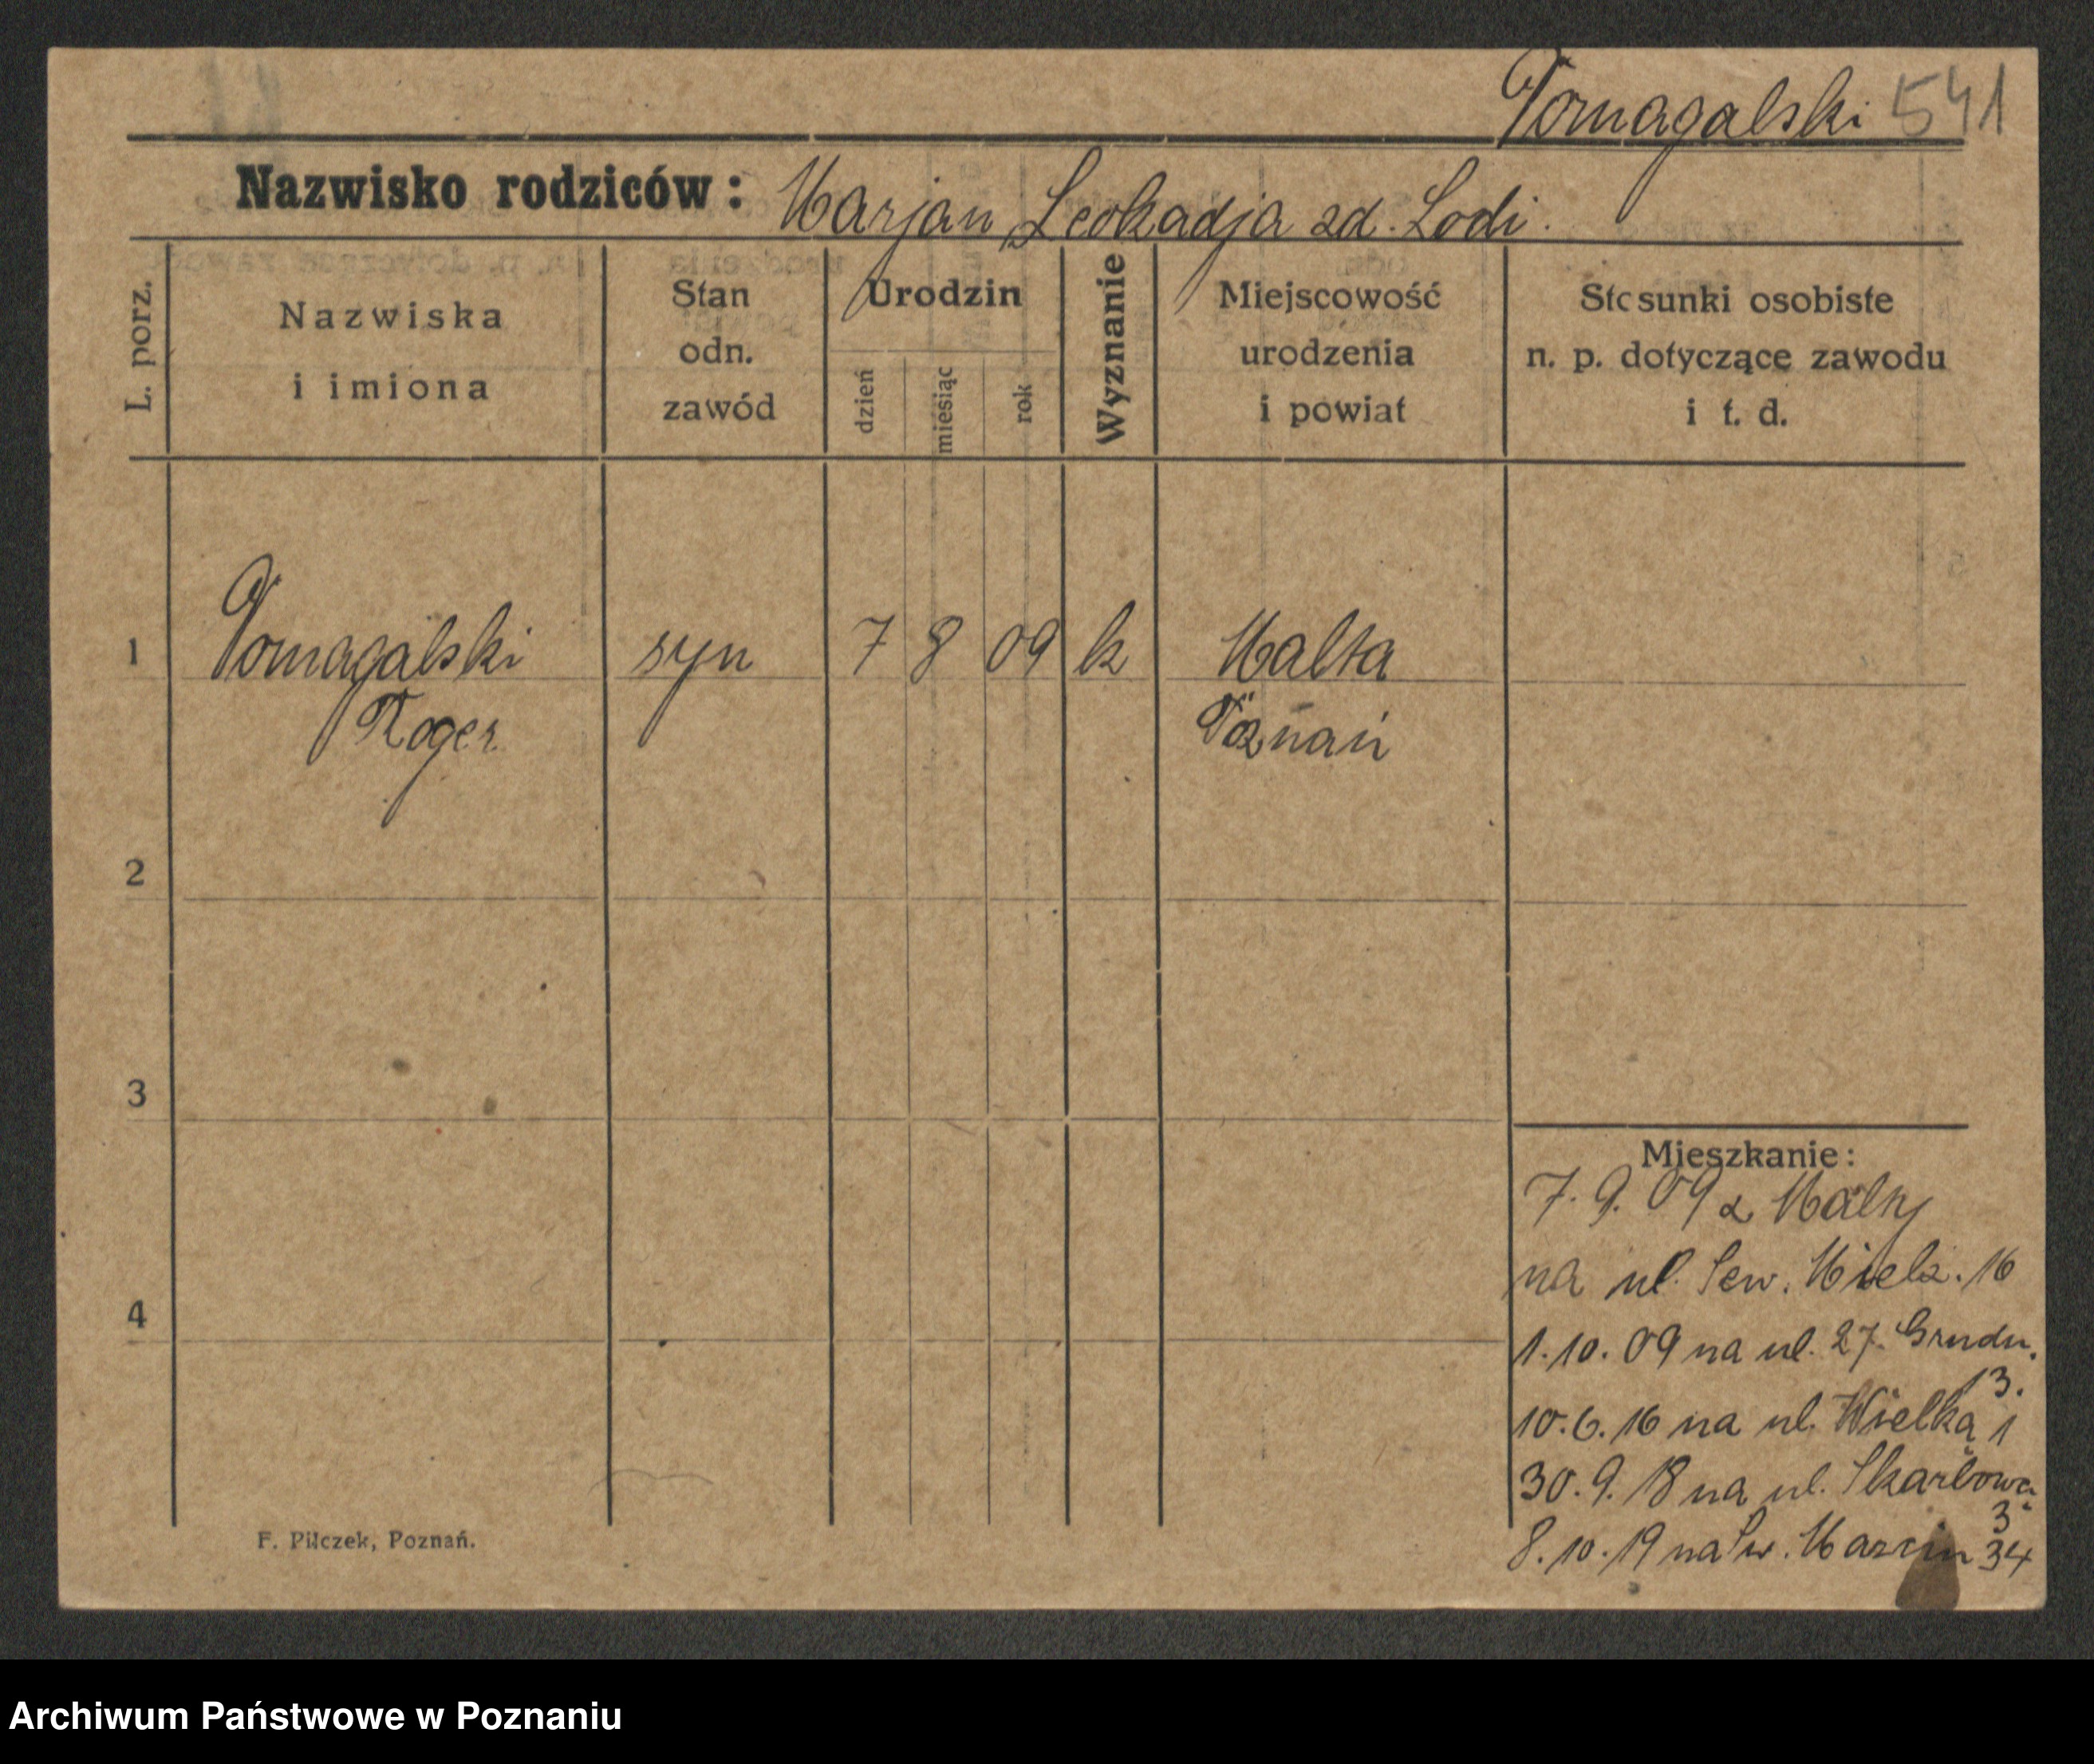 Pomagalski 541
Nazwisko rodziców: Marjan, Leokadja zd. Lodi.
L. porz.
Nazwiska
i imiona
Stan
odn.
zawód
Urodzin
dzień
miesiąc
rok
Wyznanie
Miejscowość
urodzenia
i powiat
Stosunki osobiste
n. p. dotyczące zawodu
i t. d.
1 Pomagalski syn 7 8 09 k Malta
Roger Poznań
2
3
4
Mieszkanie:
7. 9. 09 z Malty
na ul. Sew. Mielż. 16
1. 10. 09 na ul. 27. Grudn.
13.
10. 6. 16 na ul. Wielką 1
30. 9. 18 na ul. Skarbową
3
8. 10. 19 na Św. Marcin 34
F. Pilczek, Poznań.
Archiwum Państwowe w Poznaniu